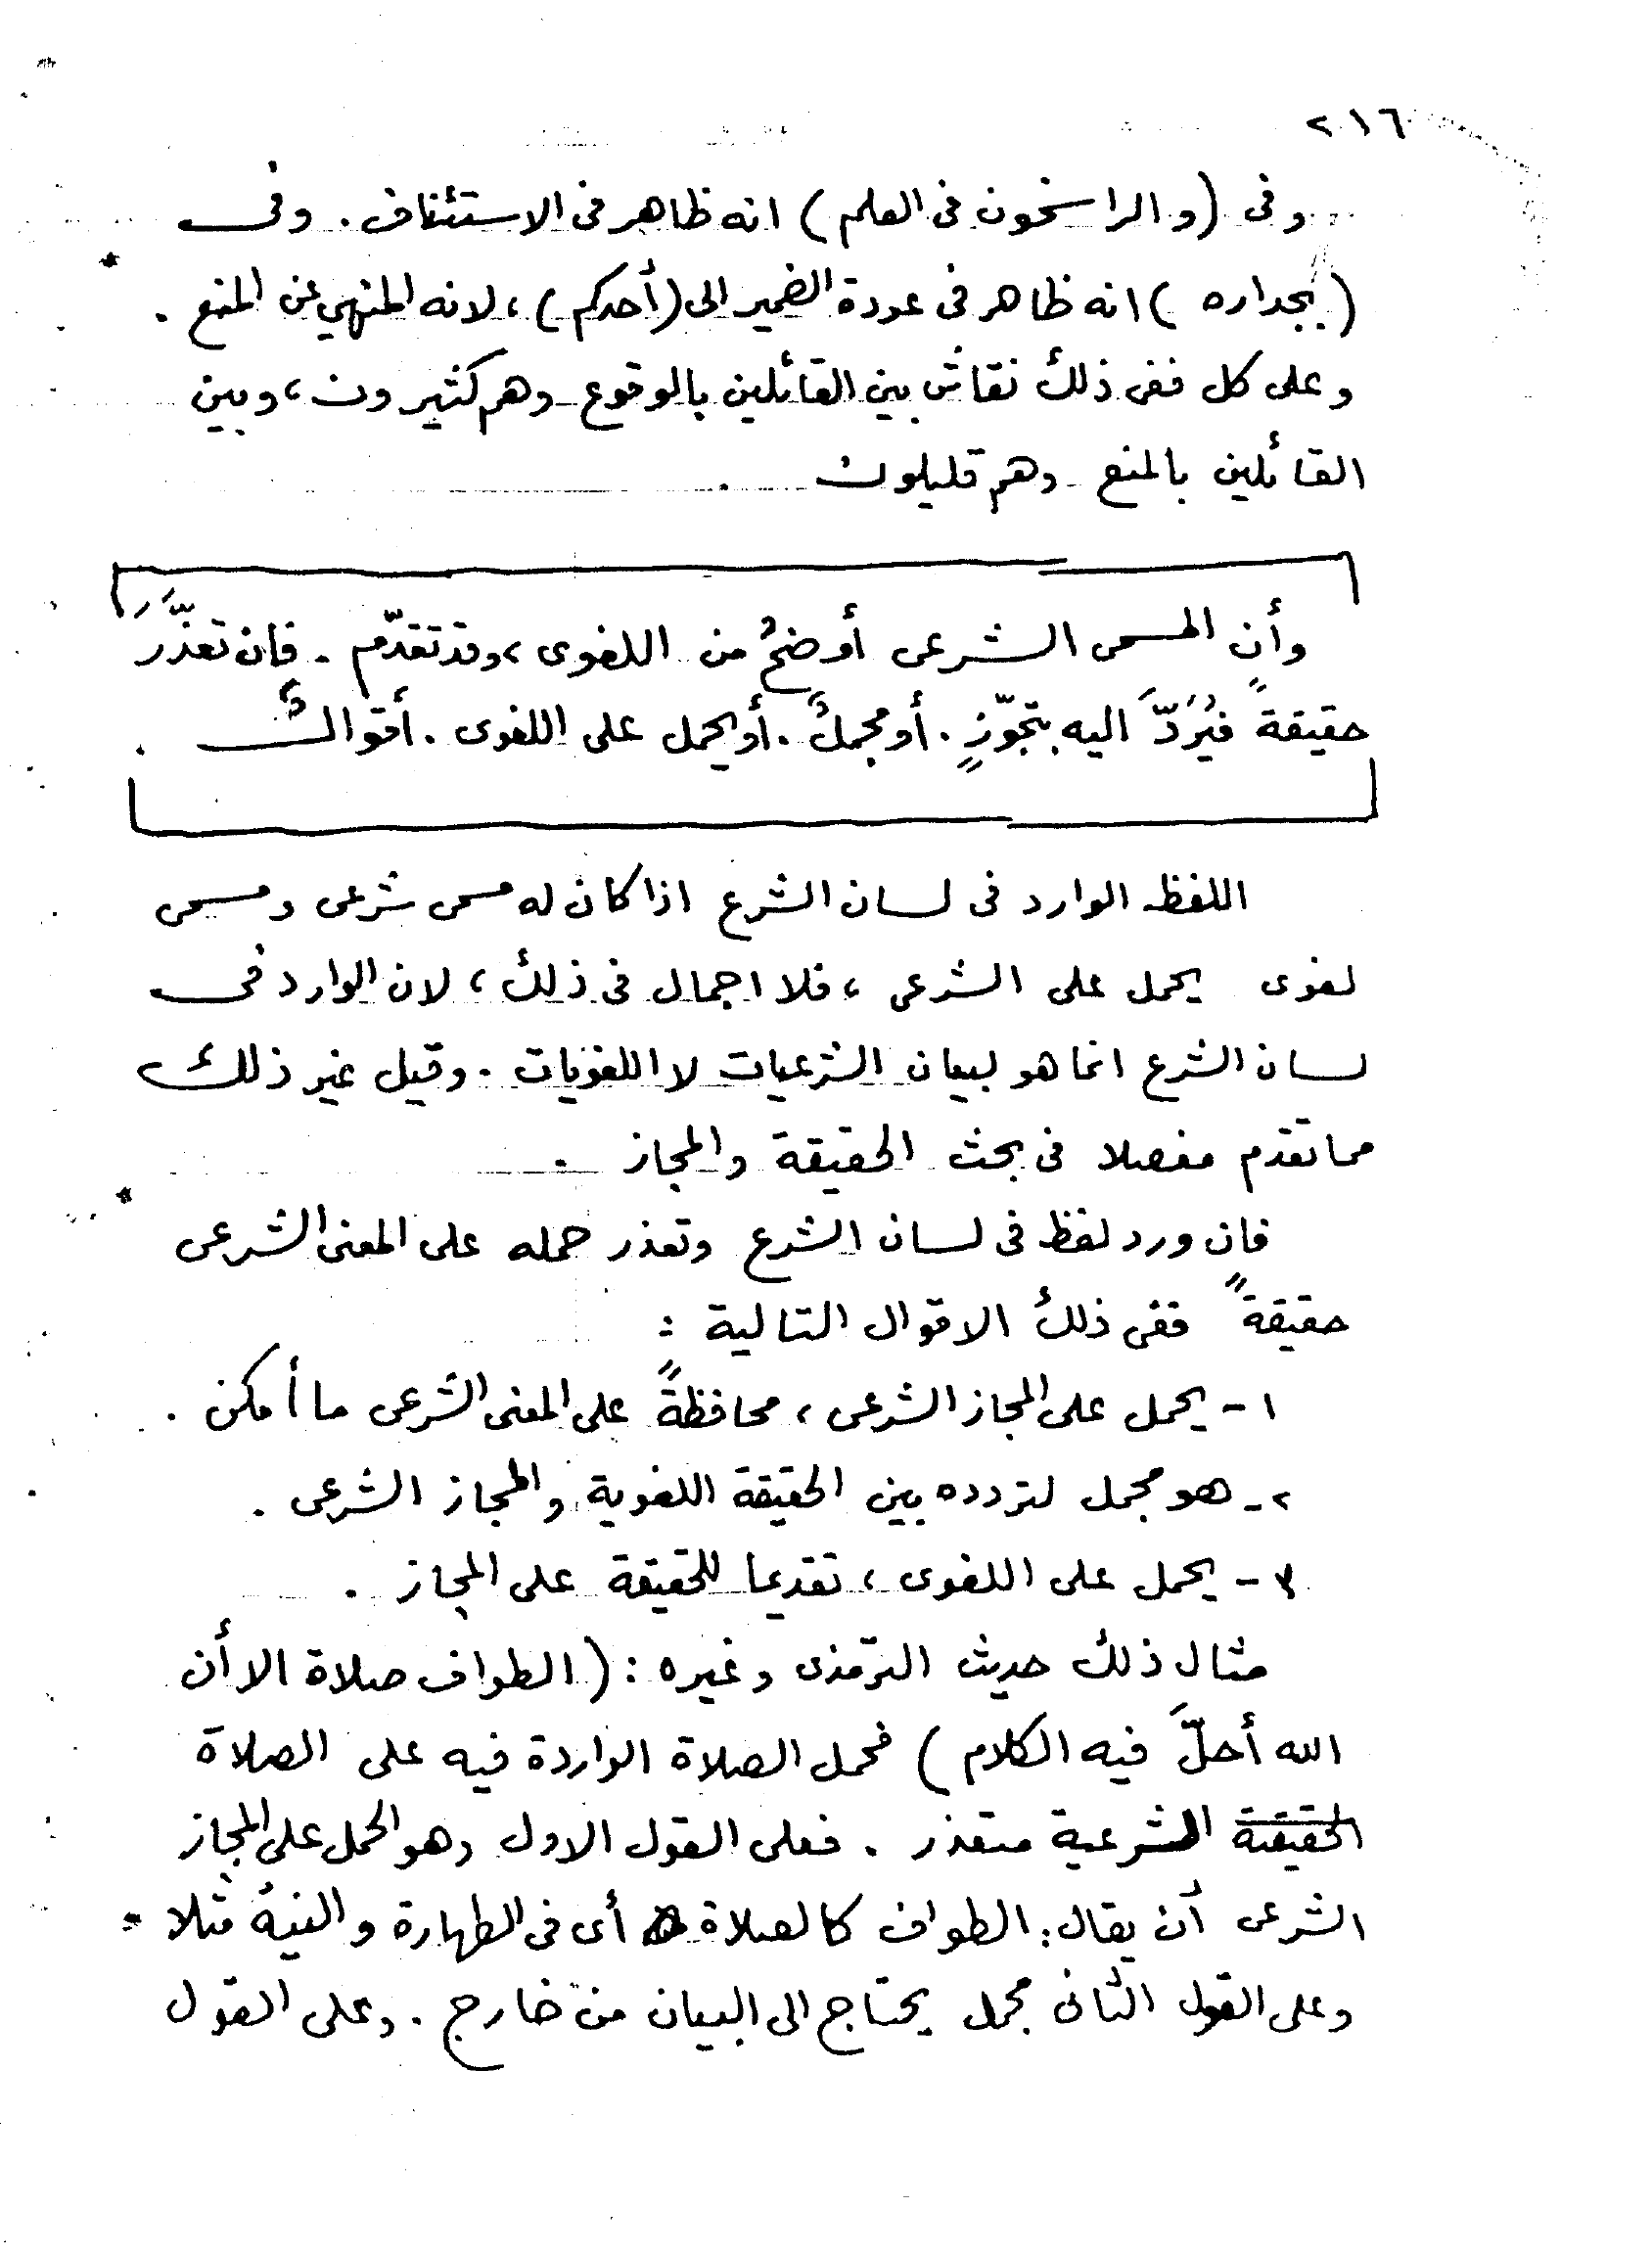 ٢١٦
وفى (والراسخون فى العلم) انه ظاهر فى الاستئناف . وفى
(بجداره) انه ظاهر فى عودة الضمير الى (أحدكم)، لانه المنهي عن المنع .
وعلى كل ففى ذلك نقاش بين القائلين بالوقوع - وهم كثيرون، وبين
القائلين بالمنع - وهم قليلون .
وأن المسمى الشرعى أوضحُ من اللغوى، وقد تقدّم . فان تعذَّرَ
حقيقةً فيُرَدَّ اليه بتجوّزٍ . أو مجملٌ . أو يحمل على اللغوى . أقوالٌ .
اللفظ الوارد فى لسان الشرع اذا كان له مسمى شرعى ومسمى
لغوى يحمل على الشرعى، فلا اجمال فى ذلك، لان الوارد فى
لسان الشرع انما هو لبيان الشرعيات لا اللغويات . وقيل غير ذلك
مما تقدم مفصلا فى بحث الحقيقة والمجاز .
فان ورد لفظ فى لسان الشرع وتعذر حمله على المعنى الشرعى
حقيقةً ففى ذلك الاقوال التالية :
١ - يحمل على المجاز الشرعى، محافظةً على المعنى الشرعى ما أمكن .
٢ - هو مجمل لتردده بين الحقيقة اللغوية والمجاز الشرعى .
٣ - يحمل على اللغوى، تقديما للحقيقة على المجاز .
مثال ذلك حديث الترمذى وغيره : (الطواف صلاة الا أن
الله أحلَّ فيه الكلام) فحمل الصلاة الواردة فيه على الصلاة
الحقيقية الشرعية متعذر . فعلى القول الاول وهو الحمل على المجاز
الشرعى أن يقال : الطواف كالصلاة أى فى الطهارة والنية مثلا .
وعلى القول الثانى مجمل يحتاج الى البيان من خارج . وعلى القول